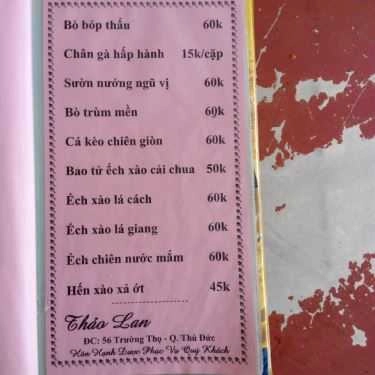 Bò bóp thấu 60k
Chân gà hấp hành 15k/cặp
Sườn nướng ngũ vị 60k
Bò trùm mền 60k
Cá kèo chiên giòn 60k
Bao tử ếch xào cải chua 50k
Ếch xào lá cách 60k
Ếch xào lá giang 60k
Ếch chiên nước mắm 60k
Hến xào xả ớt 45k
Thảo Lan
ĐC: 56 Trường Thọ - Q. Thủ Đức
Hân Hạnh Được Phục Vụ Quý Khách